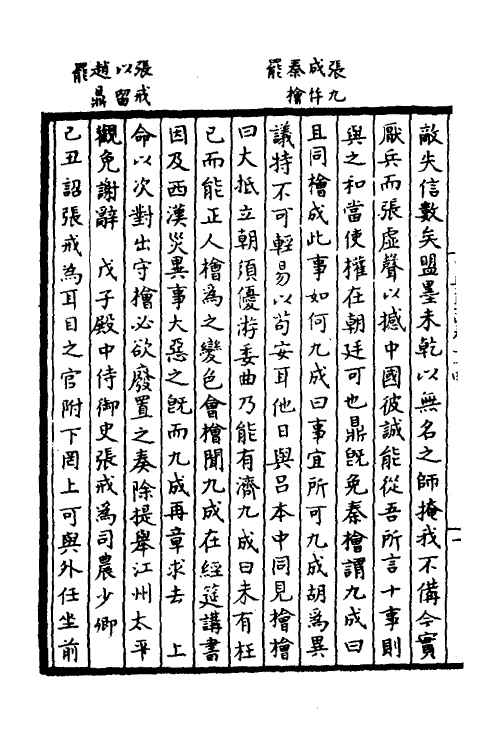 張九
成忤
秦檜
罷
張戒
以留
趙鼎
罷
敵失信數矣盟墨未乾以無名之師掩我不備今實
厭兵而張虛聲以撼中國彼誠能從吾所言十事則
與之和當使權在朝廷可也鼎旣免秦檜謂九成曰
且同檜成此事如何九成曰事宜所可九成胡爲異
議特不可輕易以苟安耳他日與呂本中同見檜檜
曰大抵立朝須優游委曲乃能有濟九成曰未有枉
已而能正人檜爲之變色會檜聞九成在經筵講書
因及西漢災異事大惡之旣而九成再章求去 上
命以次對出守檜必欲廢置之奏除提舉江州太平
觀免謝辭 戊子殿中侍御史張戒爲司農少卿
己丑詔張戒為耳目之官附下罔上可與外任坐前